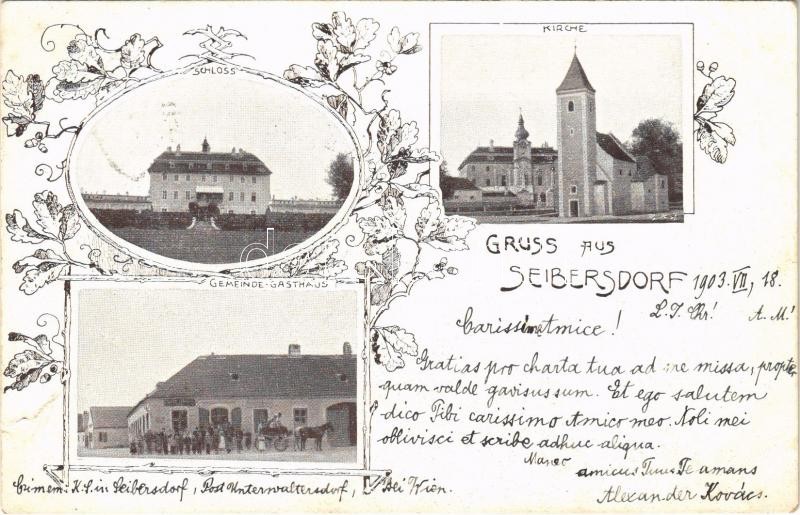 SCHLOSS
KIRCHE
GRUSS AUS
SEIBERSDORF 1903. VII, 18.
L. J. Chr! A. M!
GEMEINDE-GASTHAUS
Carissime Amice!
Gratias pro charta tua ad me missa, propter
quam valde gavisus sum. Et ego salutem
dico Tibi carissimo Amico meo. Noli mei
oblivisci et scribe adhuc aliqua.
Maneo
amicus Tuus Te amans
Alexander Kovács.
in Seibersdorf, Post Unterwaltersdorf, bei Wien.